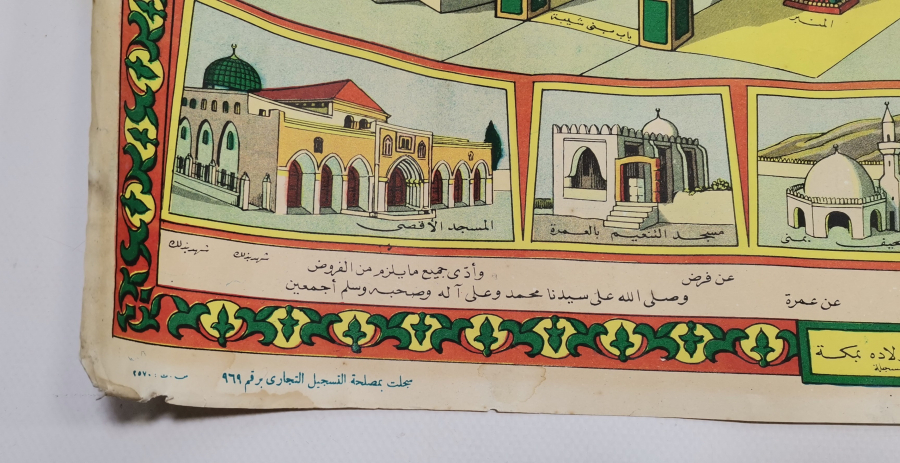 باب بنى شيبة
المنبر
المسجد الأقصى
مسجد التنعيم بالعمرة
بمنى
شهد بذلك شهد بذلك
عن فرض وأدى جميع ما يلزم من الفروض
عن عمرة وصلى الله على سيدنا محمد وعلى آله وصحبه وسلم أجمعين
ولاده بمكة
سجلت بمصلحة التسجيل التجارى برقم ٩٦٩
س.ت: ٢٥٧٠